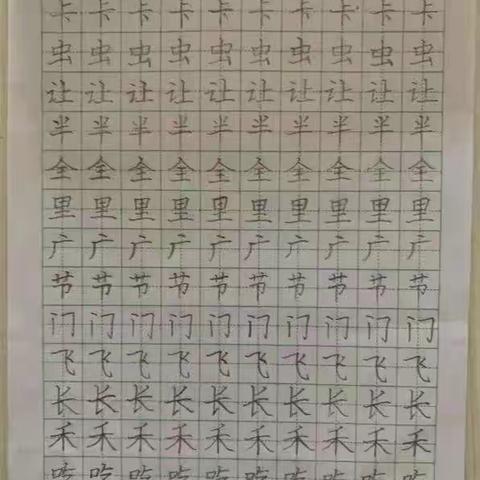 卡卡卡卡卡卡卡卡卡卡
虫虫虫虫虫虫虫虫虫虫
让让让让让让让让让让
半半半半半半半半半半
全全全全全全全全全全
里里里里里里里里里里
广广广广广广广广广广
节节节节节节节节节节
门门门门门门门门门门
飞飞飞飞飞飞飞飞飞飞
长长长长长长长长长长
禾禾禾禾禾禾禾禾禾禾
吃吃吃吃吃吃吃吃吃吃